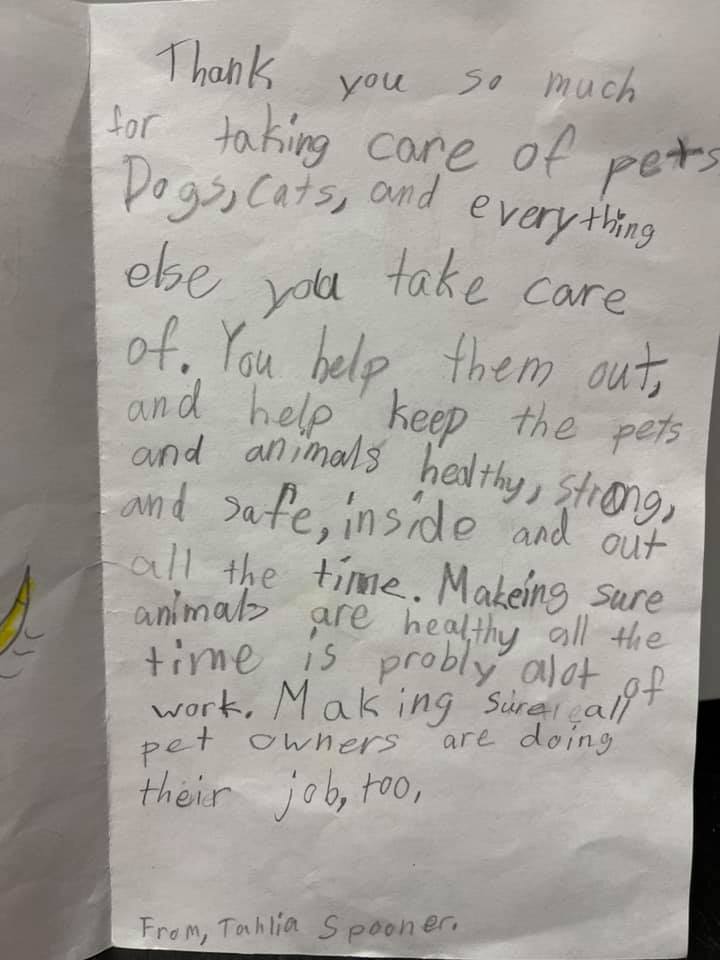 Thank you so much
for taking care of pets
Dogs, Cats, and everything
else you take care
of. You help them out,
and help keep the pets
and animals healthy, strong,
and safe, inside and out
all the time. Makeing sure
animals are healthy all the
time is probly alot of
work. Making sure all
pet owners are doing
their job, too,
From, Tahlia Spooner.